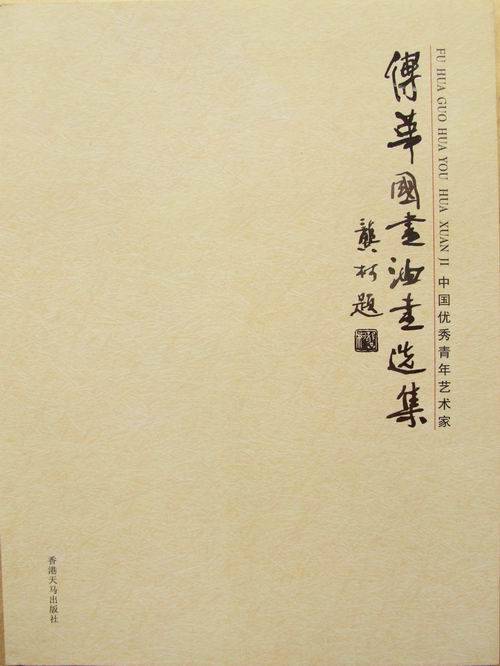 FU HUA GUO HUA YOU HUA XUAN JI 中国优秀青年艺术家
傅華國畫油畫选集
龔村題
香港天马出版社